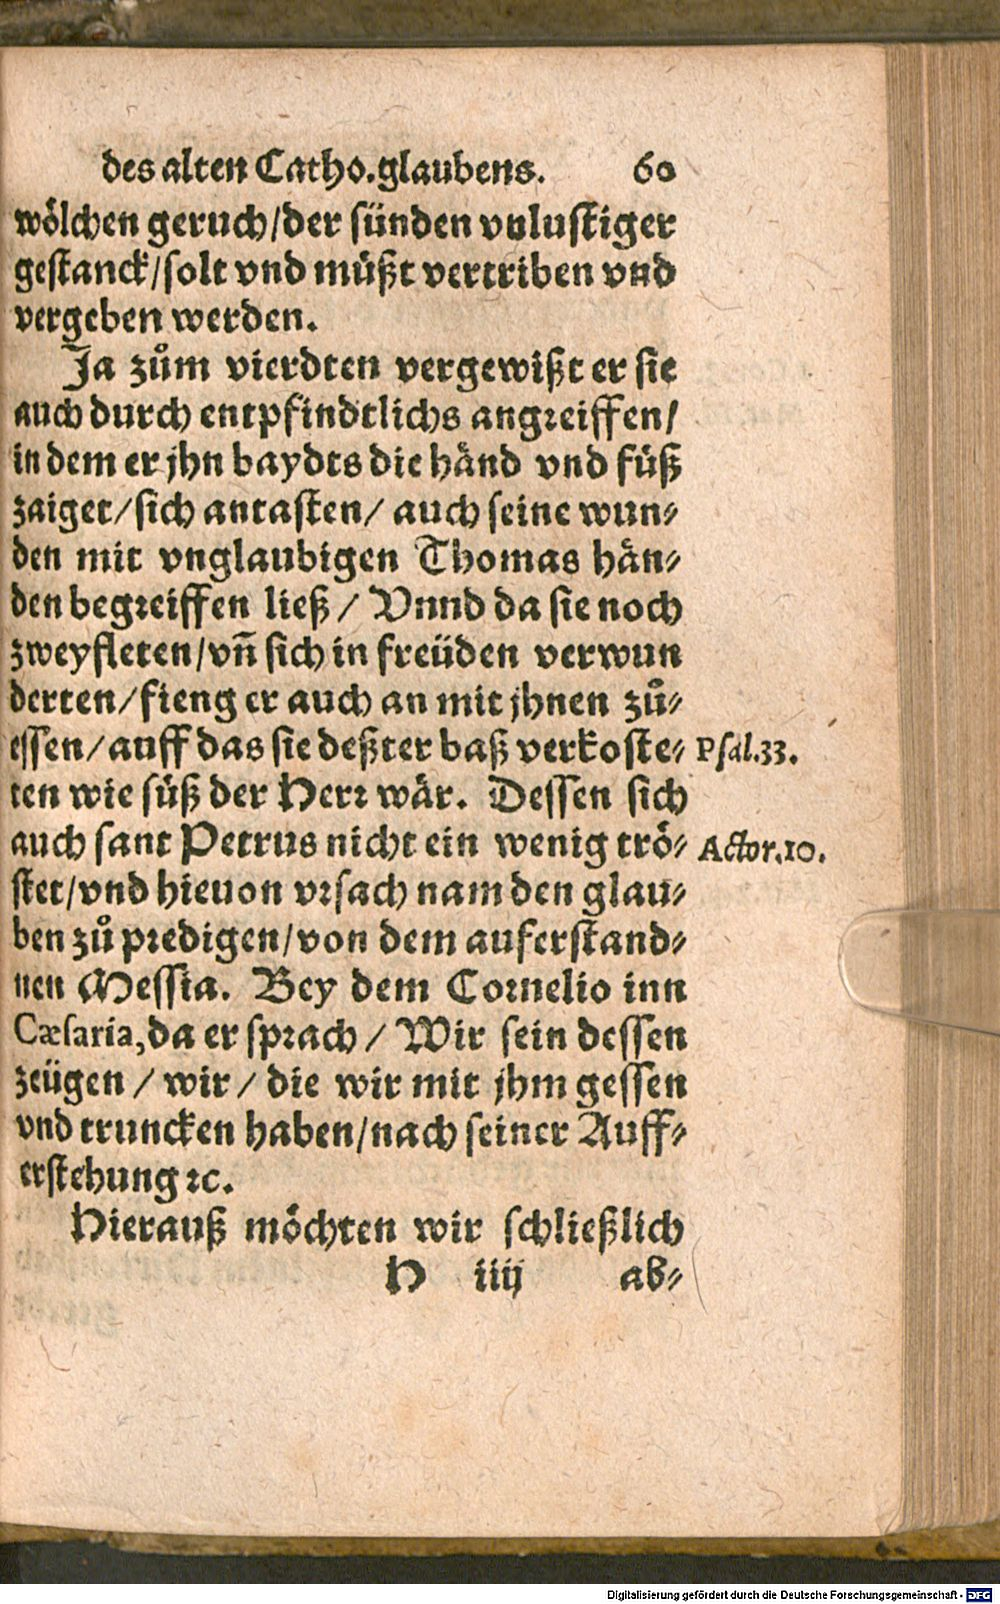 des alten Catho. glaubens. 60
wölchen geruch/der sünden vnlustiger
gestanck/solt vnd müßt vertriben vnd
vergeben werden.
Ja zům vierdten vergewißt er sie
auch durch entpfindtlichs angreiffen/
in dem er jhn baydts die händ vnd füß
zaiget/sich antasten/ auch seine wun⸗
den mit vnglaubigen Thomas hän⸗
den begreiffen ließ / Vnnd da sie noch
zweyfleten/vñ sich in freüden verwun
derten/fieng er auch an mit jhnen zů⸗
essen/auff das sie deßter baß verkoste⸗ Psal.33.
ten wie süß der Herr wär. Dessen sich
auch sant Petrus nicht ein wenig trö⸗ Actor.10.
stet/vnd hieuon vrsach nam den glau⸗
ben zů predigen/von dem auferstand⸗
nen Messia. Bey dem Cornelio inn
Cæsaria, da er sprach / Wir sein dessen
zeügen / wir / die wir mit jhm gessen
vnd truncken haben/nach seiner Auff⸗
erstehung ꝛc.
Hierauß möchten wir schließlich
H iiij ab⸗
Digitalisierung gefördert durch die Deutsche Forschungsgemeinschaft - DFG